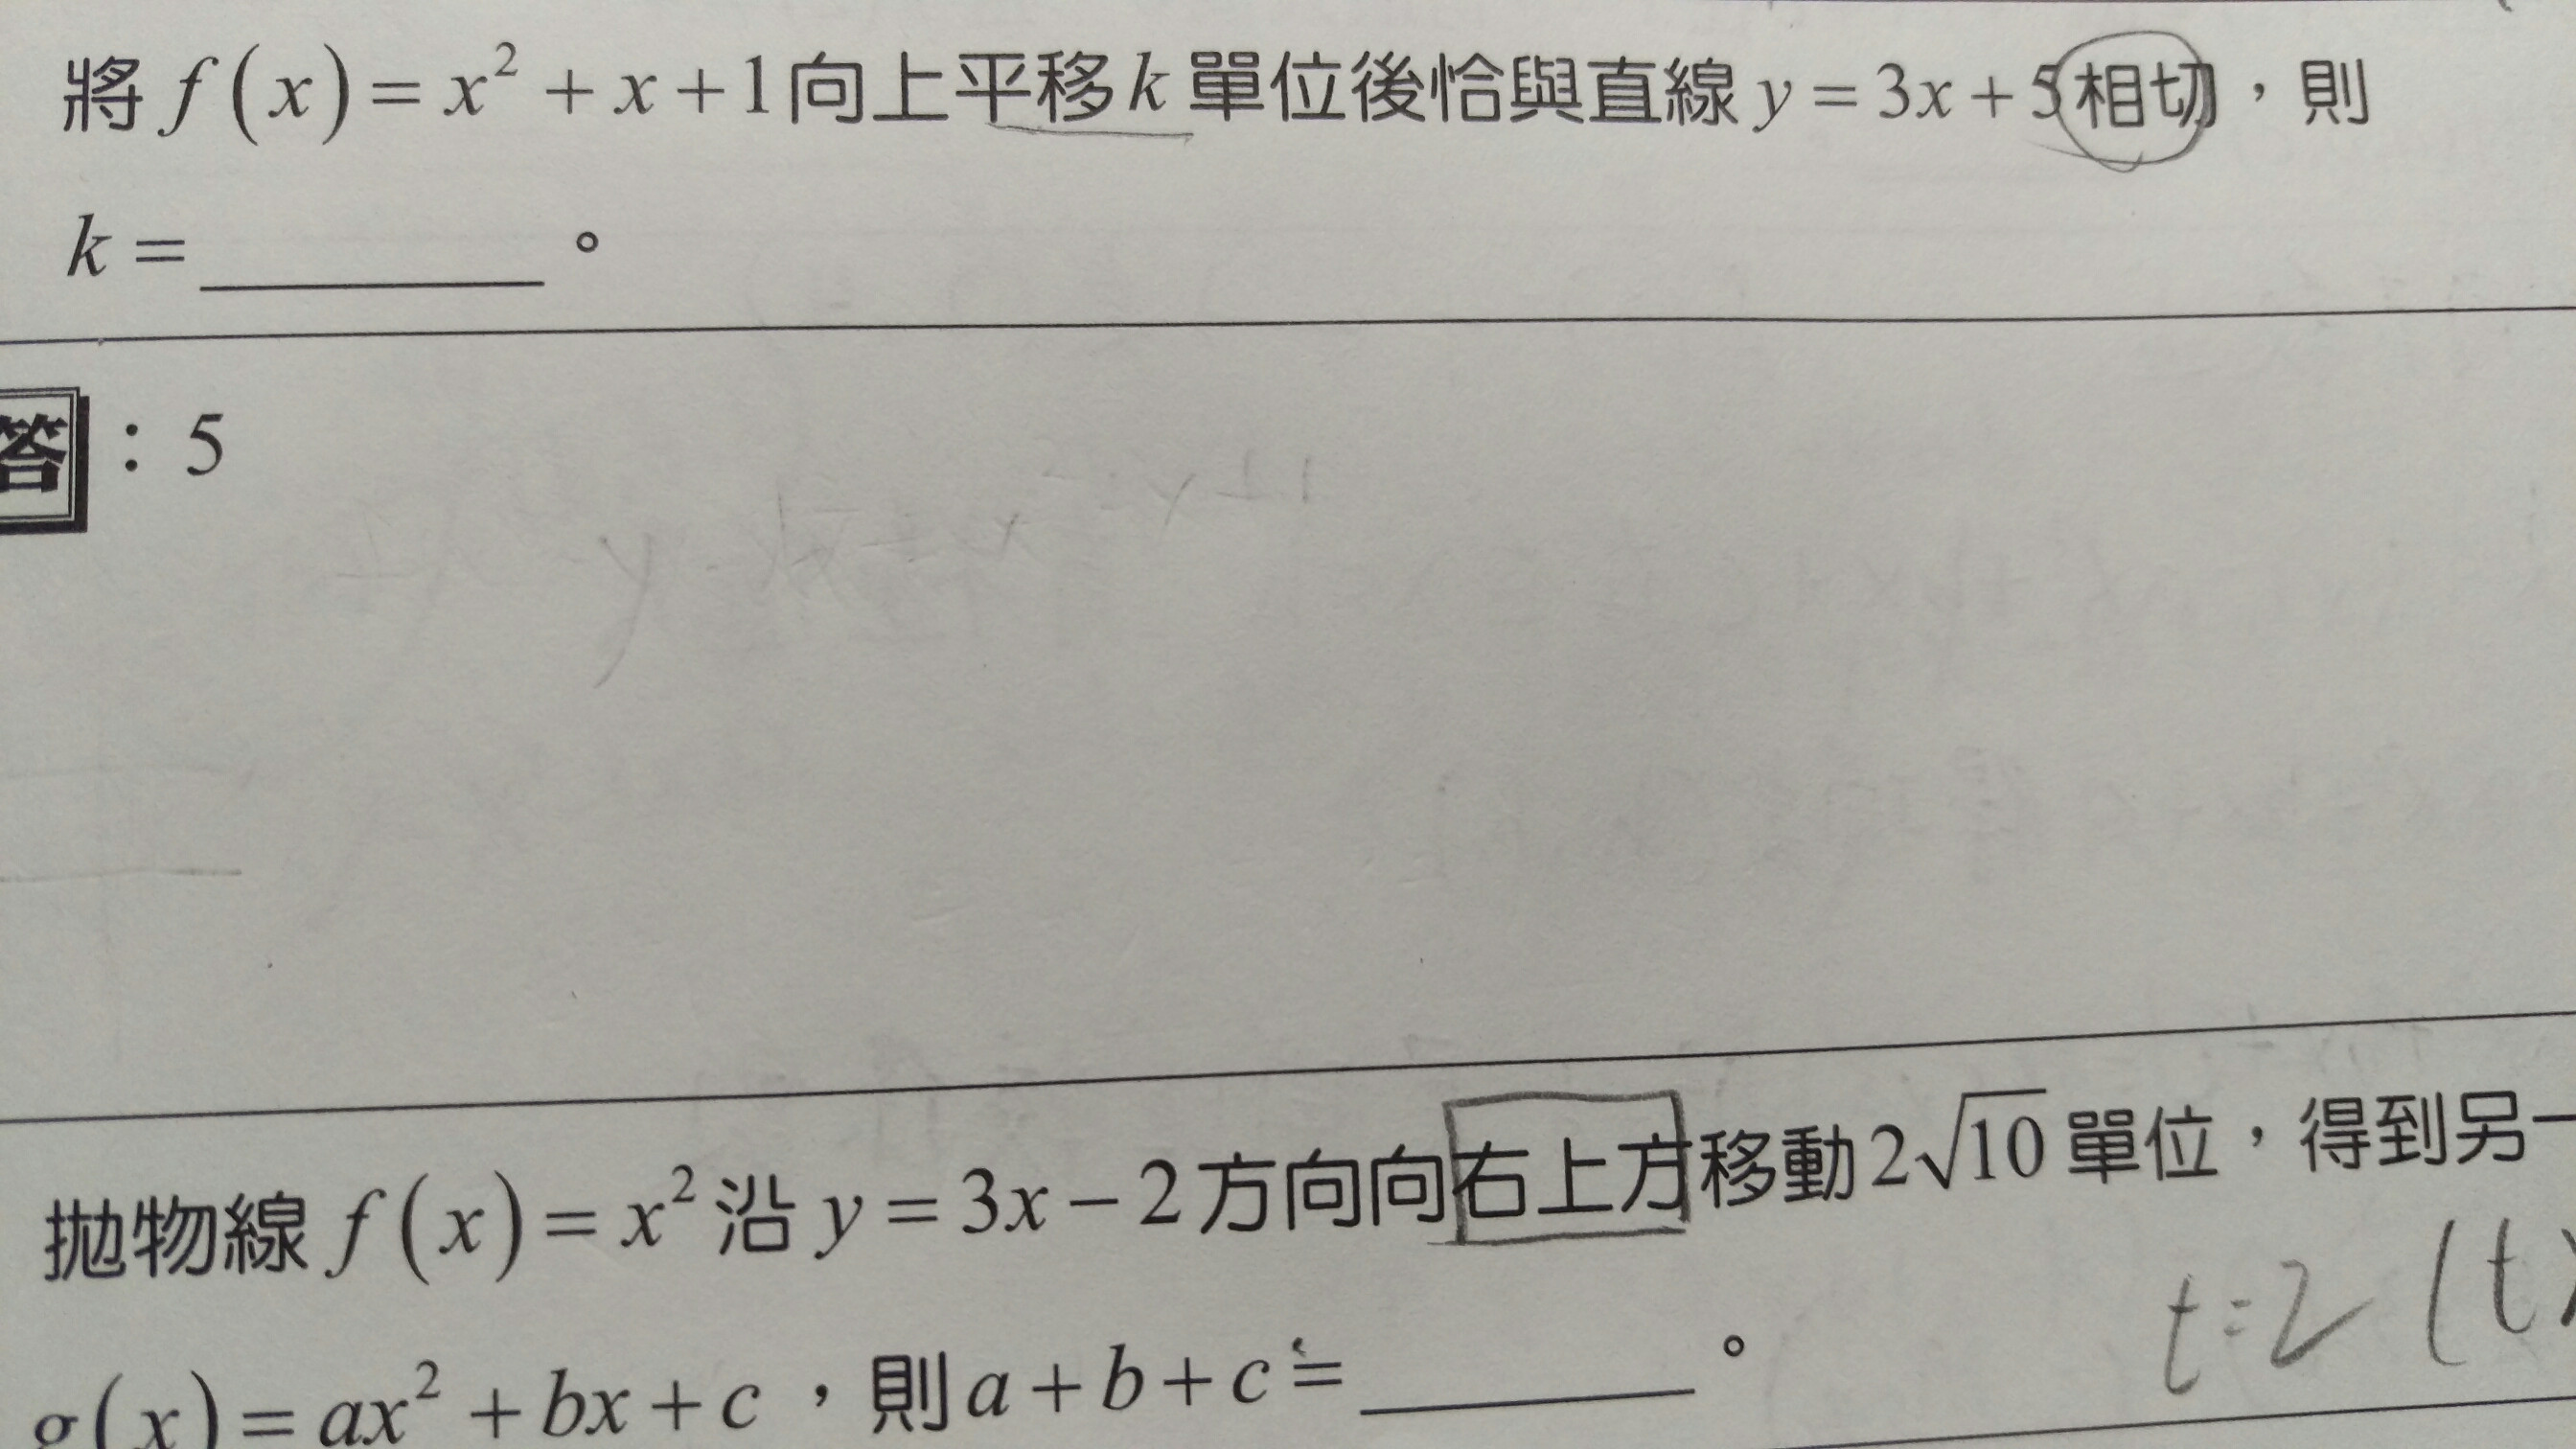 將 f(x) = x² + x + 1 向上平移 k 單位後恰與直線 y = 3x + 5 相切，則
k = ________ 。
答：5
拋物線 f(x) = x² 沿 y = 3x − 2 方向向右上方移動 2√10 單位，得到另一
t=2 (t)
g(x) = ax² + bx + c ，則 a + b + c = ________ 。